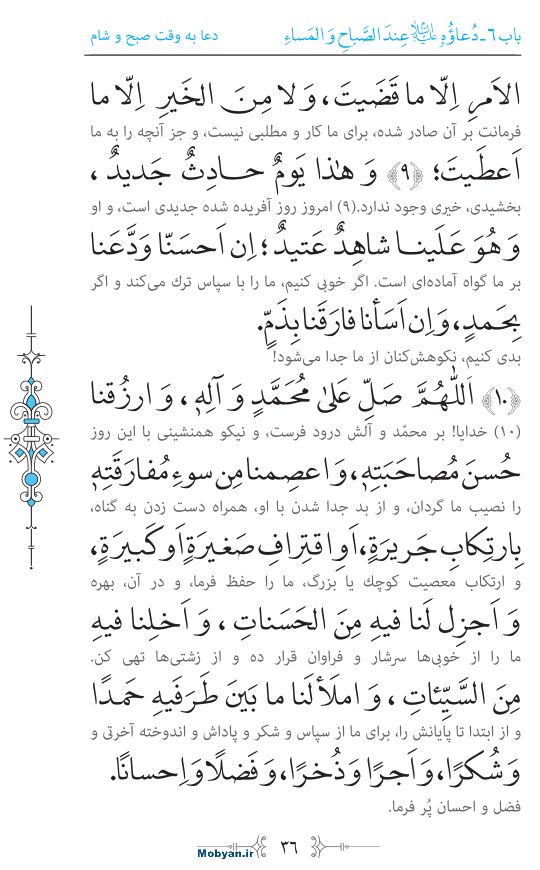 باب ٦ـ دُعاؤُهُ عِندَ الصَّباحِ وَ المَساءِ
دعا به وقت صبح و شام
الاَمرِ اِلّا ما قَضَیتَ، وَ لا مِنَ الخَیرِ اِلّا ما
فرمانت بر آن صادر شده، برای ما کار و مطلبی نیست، و جز آنچه را به ما
اَعطَیتَ؛ ﴿٩﴾ وَ هٰذا یَومٌ حادِثٌ جَدیدٌ ،
بخشیدی، خیری وجود ندارد.(٩) امروز روز آفریده شده جدیدی است، و او
وَ هُوَ عَلَینا شاهِدٌ عَتیدٌ ؛ اِن اَحسَنّا وَدَّعَنا
بر ما گواه آماده‌ای است. اگر خوبی کنیم، ما را با سپاس ترك می‌کند و اگر
بِحَمدٍ، وَ اِن اَسَأنا فارَقَنا بِذَمٍّ.
بدی کنیم، نکوهش‌کنان از ما جدا می‌شود!
﴿١٠﴾ اَللّٰهُمَّ صَلِّ عَلیٰ مُحَمَّدٍ وَ آلِهٖ ، وَ ارزُقنا
(١٠) خدایا! بر محمّد و آلش درود فرست، و نیکو همنشینی با این روز
حُسنَ مُصاحَبَتِهٖ، وَ اعصِمنا مِن سوءِ مُفارَقَتِهٖ
را نصیب ما گردان، و از بد جدا شدن با او، همراه دست زدن به گناه،
بِارتِکابِ جَریرَةٍ، اَوِ اقتِرافِ صَغیرَةٍ اَو کَبیرَةٍ،
و ارتکاب معصیت کوچك یا بزرگ، ما را حفظ فرما، و در آن، بهره
وَ اَجزِل لَنا فیهِ مِنَ الحَسَناتِ ، وَ اَخلِنا فیهِ
ما را از خوبی‌ها سرشار و فراوان قرار ده و از زشتی‌ها تهی کن.
مِنَ السَّیِّئاتِ ، وَ املَألَنا ما بَینَ طَرَفَیهِ حَمدًا
و از ابتدا تا پایانش را، برای ما از سپاس و شکر و پاداش و اندوخته آخرتی و
وَ شُکرًا، وَ اَجرًا وَ ذُخرًا، وَ فَضلًا وَ اِحسانًا.
فضل و احسان پُر فرما.
٣٦
Mobyan.ir